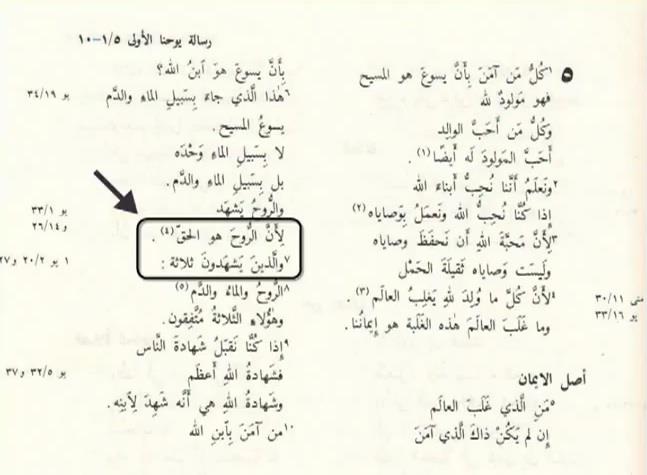 رسالة يوحنا الأولى ١/٥-١٠
٥ ١كُلُّ مَن آمَنَ بِأَنَّ يسوعَ هو المسيح
فهو مَولودٌ لله
وَكُلُّ مَن أَحَبَّ الوالِد
أَحَبَّ المَولودَ لَه أَيضًا(١) .
٢ونَعلَمُ أَنَّنا نُحِبُّ أَبناءَ الله
إِذا كُنَّا نُحِبُّ الله ونَعمَلُ بِوَصاياه(٢)
٣لِأَنَّ مَحبَّةَ اللهِ أَن نَحفَظَ وصاياه
ولَيسَت وَصاياه ثَقيلَةَ الحَمْل
٤لأَنَّ كُلَّ ما وُلِدَ للهِ يَغلِبُ العالَم(٣) .
متى ٣٠/١١
يو ٣٣/١٦
وما غَلَبَ العالَمَ هٰذه الغَلَبة هو إِيمانُنا.
أصل الايمان
٥مَنِ الَّذي غَلَبَ العالَم
إِن لم يَكُنْ ذاكَ الَّذي آمَنَ
بِأَنَّ يسوعَ هوَ ابنُ الله؟
٦هٰذا الَّذي جاءَ بِسَبيلِ الماءِ والدَّم
يو ٣٤/١٩
يسوعُ المسيح.
لا بِسَبيلِ الماءِ وَحْدَه
بل بِسَبيلِ الماءِ والدَّم.
والرُّوحُ يَشهَد
يو ٣٣/١
و٢٦/١٤
لِأَنَّ الرُّوحَ هو الحَقّ(٤) .
٧والَّذينَ يَشهَدونَ ثلاثة :
١ يو ٢٠/٢ و٢٧
٨الرُّوحُ والماءُ والدَّم(٥)
وهٰؤُلاءِ الثَّلاثةُ مُتَّفِقون.
٩إِذا كُنَّا نَقبَلُ شَهادةَ النَّاس
فشَهادةُ اللهِ أَعظَم
يو ٣٢/٥ و٣٧
وشَهادةُ اللهِ هي أَنَّه شَهِدَ لِاَبنِه.
١٠من آمَنَ بِاَبنِ الله